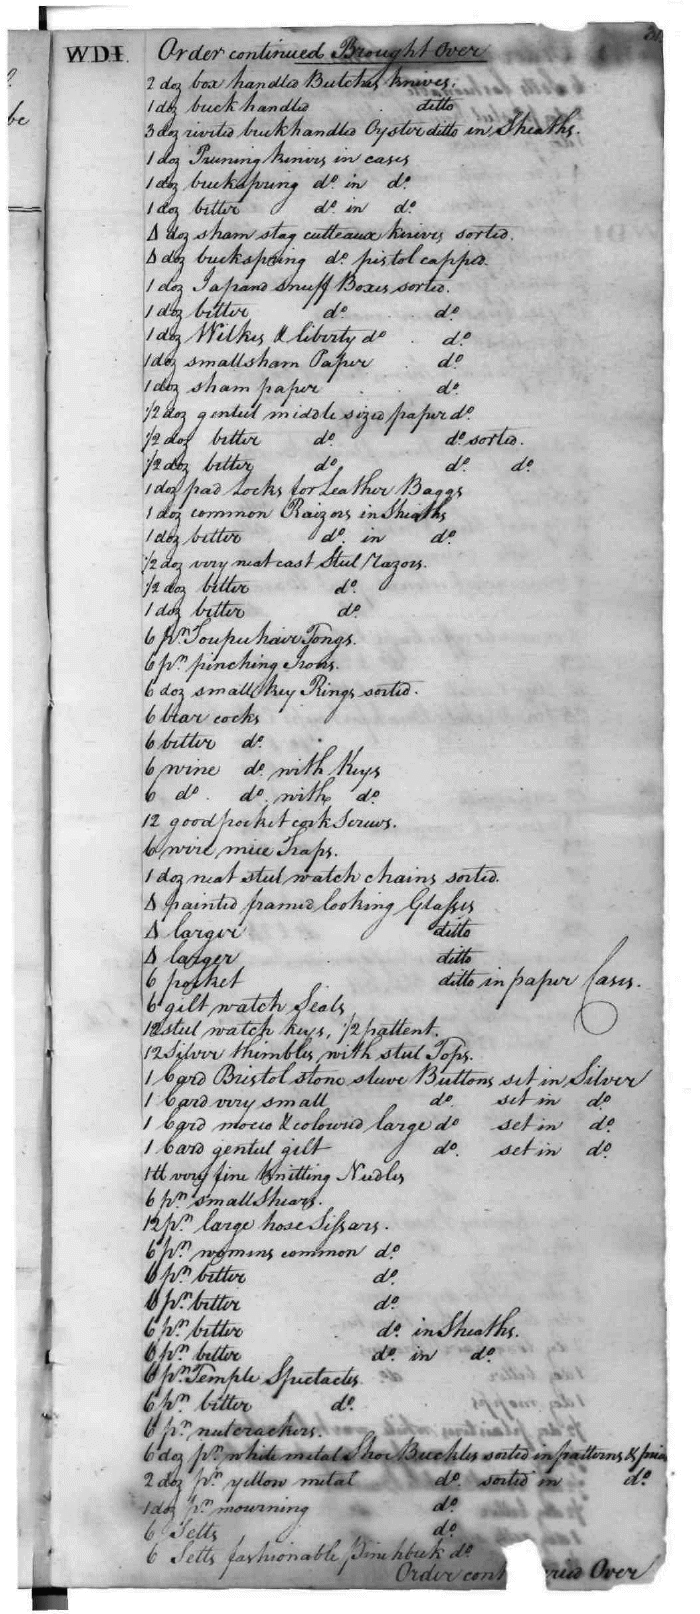 WDI. Order continued Brought Over
2 doz box handled Butcher knives.
1 doz buck handled ditto
3 doz riveted buckhandled Oyster ditto in Sheaths.
1 doz Pruning knives in cases
1 doz buckspring do. in do.
1 doz better do. in do.
∆ doz sham stag cutteaux knives sorted.
∆ doz buckspring do. pistol capped.
1 doz Japand snuff Boxes sorted.
1 doz better do. do.
1 doz Wilkes & liberty do. do.
1 doz small sham Paper do.
1 doz sham paper do.
1/2 doz genteel middle sized paper do.
1/2 doz better do. do. sorted.
1/2 doz better do. do. do.
1 doz pad Locks for Leather Baggs
1 doz common Raizors in Sheaths
1 doz better do. in do.
1/2 doz very neat cast Steel Razors.
1/2 doz better do.
1 doz better do.
6 prs. Toupee hair Tongs.
6 prs. pinching Irons.
6 doz small key Rings sorted.
6 bear cocks
6 better do.
6 wine do. with Keys
6 do. do. with do.
12 good pocket cork Screws.
6 wire mice Traps.
1 doz neat steel watch chains sorted.
∆ painted framed looking Glasses
∆ larger ditto
∆ larger ditto
6 pocket ditto in paper Cases.
6 gilt watch Seals
12 steel watch keys, 1/2 pattent.
12 Silver thimbles with steel Tops.
1 Card Bristol stone sleeve Buttons set in Silver
1 Card very small do. set in do.
1 Card moco & coloured large do. set in do.
1 Card genteel gilt do. set in do.
1 lb very fine Knitting Needles
6 prs. small Shears.
12 prs. large hose Sissars.
6 prs. womens common do.
6 prs. better do.
6 prs. better do.
6 prs. better do. in Sheaths.
6 prs. better do. in do.
6 prs. Temple Spectacles
6 prs. better do.
6 prs. nutcrackers.
6 doz prs. white metal Shoe Buckles sorted in patterns &
2 doz prs. yellow metal do. sorted in do.
1 doz prs. mourning do.
6 Setts do.
6 Setts fashionable pinchbeck do.
Order Over